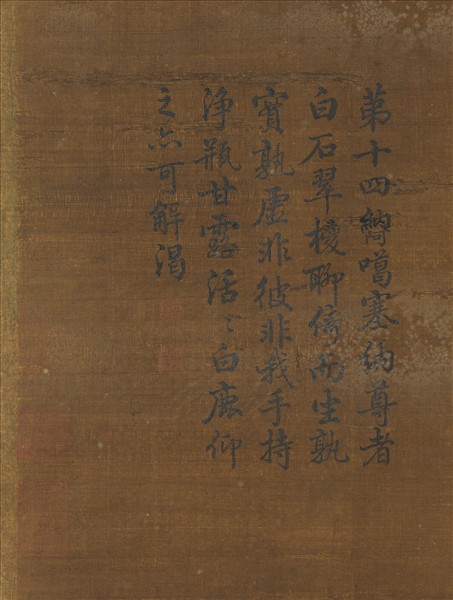 第十四納阿噶塞納尊者
白石翠椶聊倚而坐孰
實孰虛非彼非我手持
淨瓶甘露活〻白鹿仰
之亦可解渴